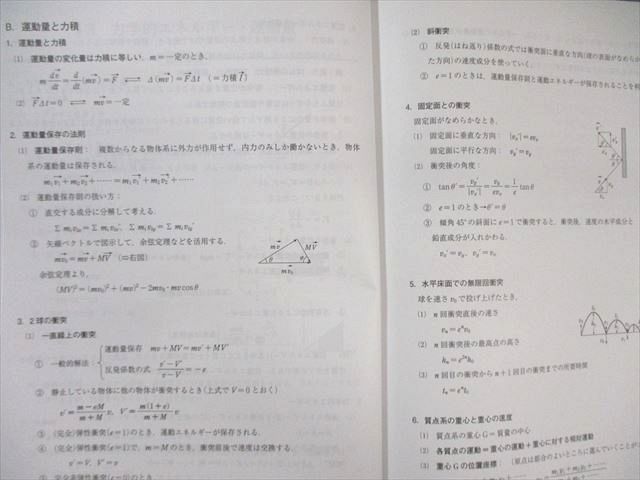 B. 運動量と力積
1. 運動量と力積
(1) 運動量の変化量は力積に等しい. m=一定のとき,
m dv/dt = d/dt (mv) = F ⇌ Δ(mv) = FΔt (=力積 I)
(2) FΔt=0 ⇌ mv=一定
2. 運動量保存の法則
(1) 運動量保存則: 複数からなる物体系に外力が作用せず, 内力のみしか働かないとき, 物体
系の運動量は保存される.
m₁v₁+m₂v₂+……=m₁v₁'+m₂v₂'+……
(2) 運動量保存則の扱い方:
① 直交する成分に分解して考える.
② 矢線ベクトルで図示して, 余弦定理などを活用する.
mv₀=mv+MV (⇨右図)
余弦定理より,
(MV)²=(mv₀)²+(mv)²−2mv₀·mv cosθ
mv
MV
θ
φ
mv₀
3. 2球の衝突
(1) 一直線上の衝突
① 一般的解法:
運動量保存 mv+MV=mv'+MV'
反発係数の式 (v'−V')/(v−V)=−e
② 静止している物体に他の物体が衝突するとき(上式でV=0とおく)
v'=(m−eM)/(m+M) v, V'=m(1+e)/(m+M) v
③ (完全)弾性衝突(e=1)のとき, 運動エネルギーが保存される.
④ (完全)弾性衝突(e=1)で, m=Mのとき, 衝突前後で速度は交換する.
v'=V, V'=v
(2) 斜衝突
① 反発(はね返り)係数の式では衝突面に垂直な方向(球の表面がなめらか
た方向)の速度成分を使っていく.
② e=1のときは, 運動量保存則と運動エネルギーが保存されることを利
4. 固定面との衝突
固定面がなめらかなとき,
(1) 固定面に垂直な方向: |vₓ'|=evₓ
固定面に平行な方向: v_y'=v_y
(2) 衝突後の角度:
① tanθ'=v_y'/|vₓ'|=v_y/evₓ=1/e tanθ
② e=1のとき→θ'=θ
③ 傾角45°の斜面にe=1で衝突すると, 衝突後, 速度の水平成分と
鉛直成分が入れかわる.
vₓ'=v_y, v_y'=vₓ
5. 水平床面での無限回衝突
球を速さv₀で投げ上げたとき,
(1) n回衝突直後の速さ
vₙ=eⁿv₀
(2) n回衝突後の最高点の高さ
hₙ=e²ⁿh₀
(3) n回目の衝突からn+1回目の衝突までの所要時間
tₙ=eⁿt₀
6. 質点系の重心と重心の速度
(1) 質点系の重心G=質量の中心
(2) 各質点の運動=重心の運動+重心に対する相対運動
(3) 重心Gの位置座標: